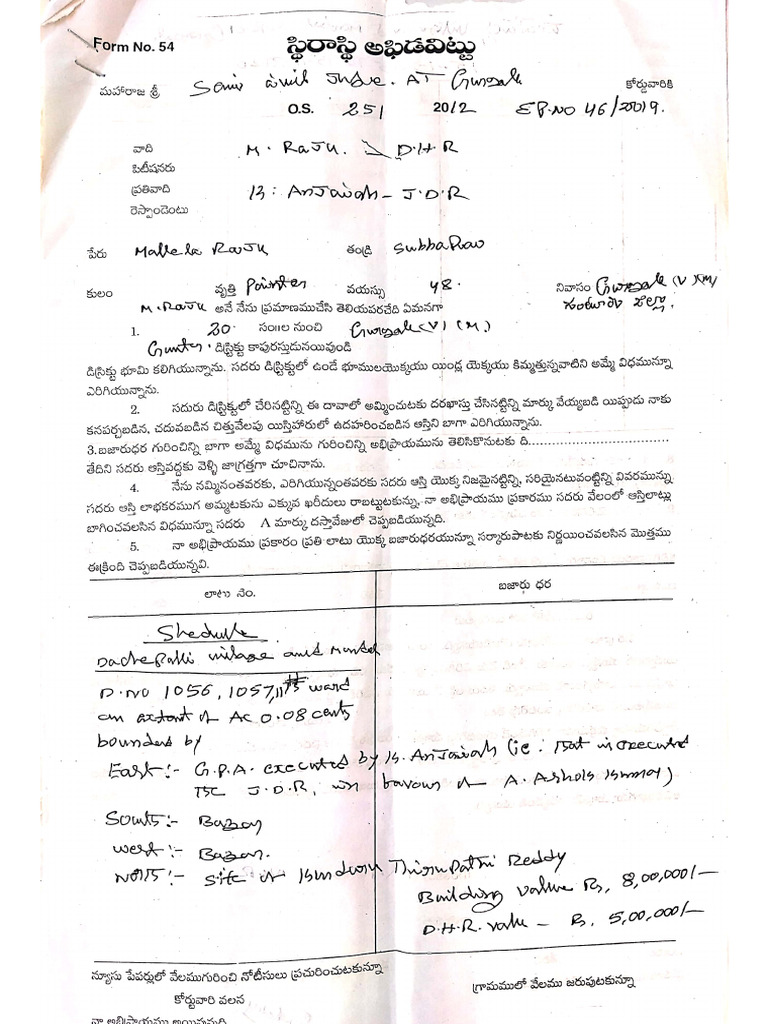 Form No. 54
స్థిరాస్థి అఫిడవిట్టు
మహారాజ శ్రీ Civil Judge. AT Gurzala కోర్టువారికి
O.S. 251 2012 EP.NO 46/2019.
వాది M. RAJU. D.H.R
పిటీషనరు
ప్రతివాది K: Anjaiah - J.D.R
రెస్పాండెంటు
పేరు Mallela RAJU తండ్రి SubbaRao
కులం వృత్తి Painter వయస్సు 48. నివాసం Gurzala (V) (M)
గుంటూరు జిల్లా.
M. RAJU అనే నేను ప్రమాణముచేసి తెలియపరచేది ఏమనగా
1. 30 సం॥ల నుంచి Gurzala (V) (M)
Guntur. డిస్ట్రిక్టు కాపురస్తుడునయివుండి
డిస్రిక్టు భూమి కలిగియున్నాను. సదరు డిస్ట్రిక్టులో ఉండే భూములయొక్కయు యిండ్ల యొక్కయు కిమ్మత్తున్నవాటిని అమ్మే విధమున్నూ
ఎరిగియున్నాను.
2. సదురు డిస్ట్రిక్ట్వులో చేరినట్టిన్ని ఈ దావాలో అమ్మించుటకు దరఖాస్తు చేసినట్టిన్ని మార్కు వేయ్యబడి యిప్పుడు నాకు
కనపర్చబడిన, చదువబడిన చిత్తువేలపు యిస్తిహారులో ఉదహరించబడిన ఆస్తిని బాగా ఎరిగియున్నాను.
3.బజారుధర గురించిన్ని బాగా అమ్మే విధమును గురించిన్ని అభిప్రాయమును తెలిసికొనుటకు ది..................................
తేదిని సదరు ఆస్తివద్దకు వెళ్ళి జాగ్రత్తగా చూచినాను.
4. నేను నమ్మినంతవరకు, ఎరిగియున్నంతవరకు సదరు ఆస్తి యొక్క నిజమైనట్టిన్ని, సరియైనటువంట్టిన్ని వివరమున్ను
సదరు ఆస్తి లాభకరముగ అమ్మటకును ఎక్కువ ఖరీదులు రాబట్టుటకున్ను, నా అభిప్రాయము ప్రకారము సదరు వేలంలో ఆస్తిలాట్లు
బాగించవలసిన విధమున్నూ సదరు A మార్కు దస్తావేజులో చెప్పబడియున్నది.
5. నా అభిప్రాయము ప్రకారం ప్రతి లాటు యొక్క బజారుధరయున్నూ సర్కారుపాటకు నిర్ణయించవలసిన మొత్తము
ఈక్రింది చెప్పబడియున్నవి.
లాటు నెం. బజారు ధర
Shedulle
Dachepalli village and Mandal
D.No 1056, 1057, 11th ward
an extent of AC 0.08 cents
bounded by
East:- G.P.A. executed by K. Anjaiah (ie. executed
J.D.R, in favour of A. Ashok Kumar)
South:- Bazar
West:- Bazar.
North:- Site of Kunduru Thirupathi Reddy
Building value Rs, 8,00,000/-
D.H.R. value - Rs. 5,00,000/-
న్యూసు పేపర్లులో వేలముగురించి నోటీసులు ప్రచురించుటకున్నూ
గ్రామములో వేలము జరుపుటకున్నూ
కోర్టువారి వలన
నా అభిప్రాయము అయివున్నది